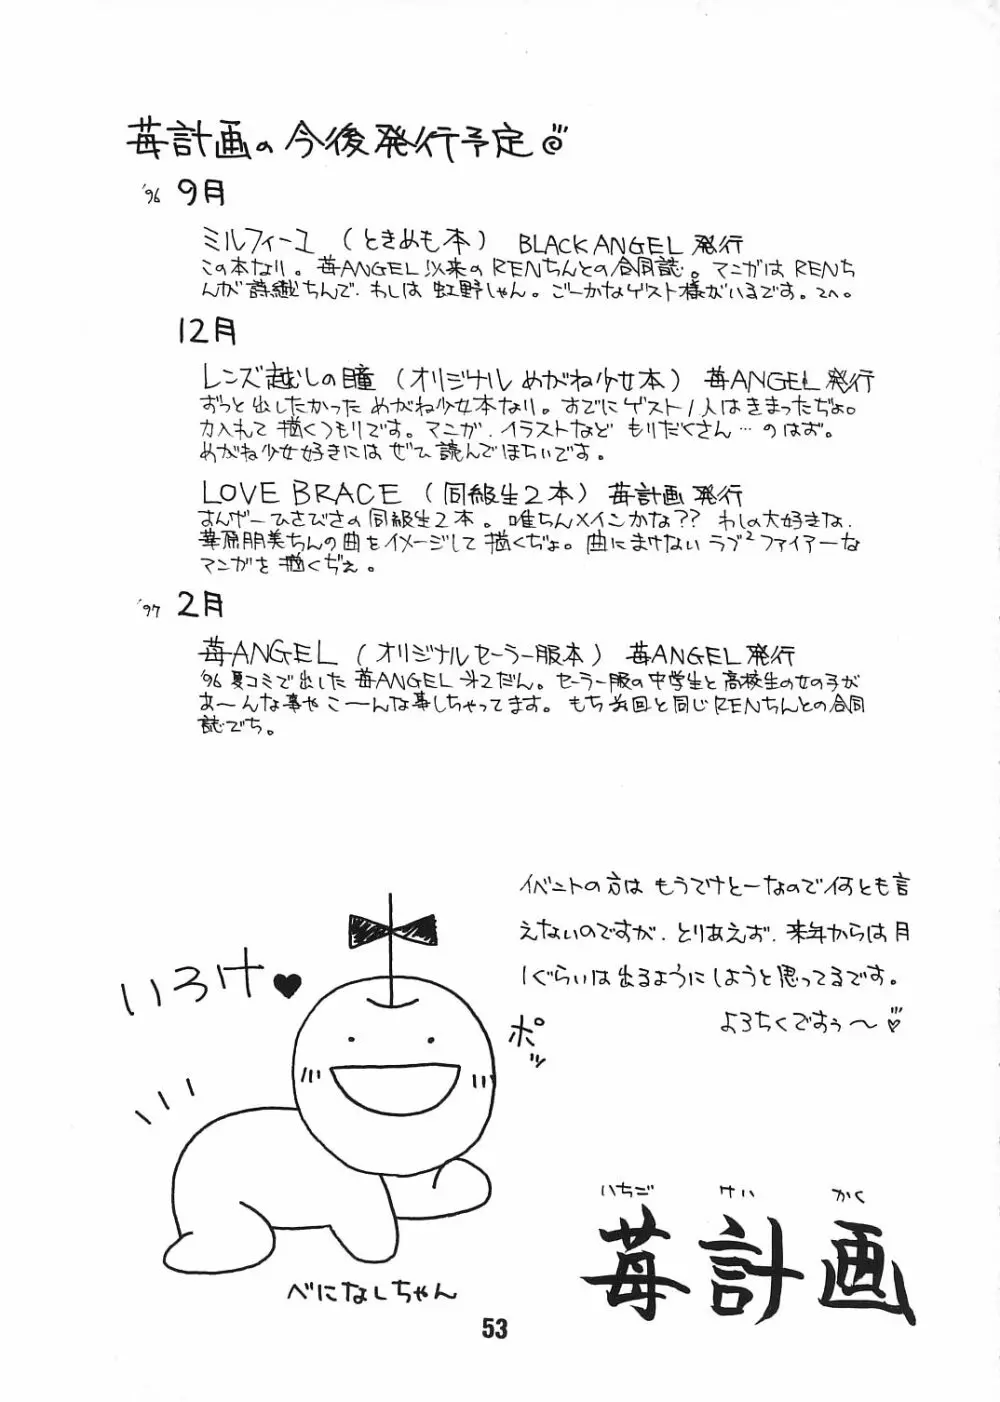 苺計画の今後発行予定
'96 9月
ミルフィーユ (ときめも本) BLACK ANGEL 発行
この本なり。苺ANGEL以来のRENちんとの合同誌。マンガはRENち
んが詩織ちんで、わしは虹野しゃん。ごーかなゲスト様がいるです。
12月
レンズ越しの瞳 (オリジナルめがね少女本) 苺ANGEL発行
ずっと出したかっためがね少女本なり。すでにゲスト1人はきまったぢょ。
力入れて描くつもりです。マンガ、イラストなどもりだくさん…のはず。
めがね少女好きにはぜひ読んでほちいです。
LOVE BRACE (同級生2本) 苺計画発行
すんげーひさびさの同級生2本。唯ちんメインかな?? わしの大好きな、
華原朋美ちんの曲をイメージして描くぢょ。曲にまけないラブ2ファイアーな
マンガを描くぢぇ。
'97 2月
苺ANGEL (オリジナルセーラー服本) 苺ANGEL発行
'96夏コミで出した苺ANGEL第2だん。セーラー服の中学生と高校生の女の子が
あ〜んな事やこ〜んな事しちゃってます。もち前回と同じRENちんとの合同
誌でち。
イベントの方はもうてけとーなので何とも言
えないのですが、とりあえず、来年からは月
1ぐらいは出るようにしようと思ってるです。
よろちくですぅ〜
いろけ♥
ポッ
べになしちゃん
いちご けい かく
苺計画
53